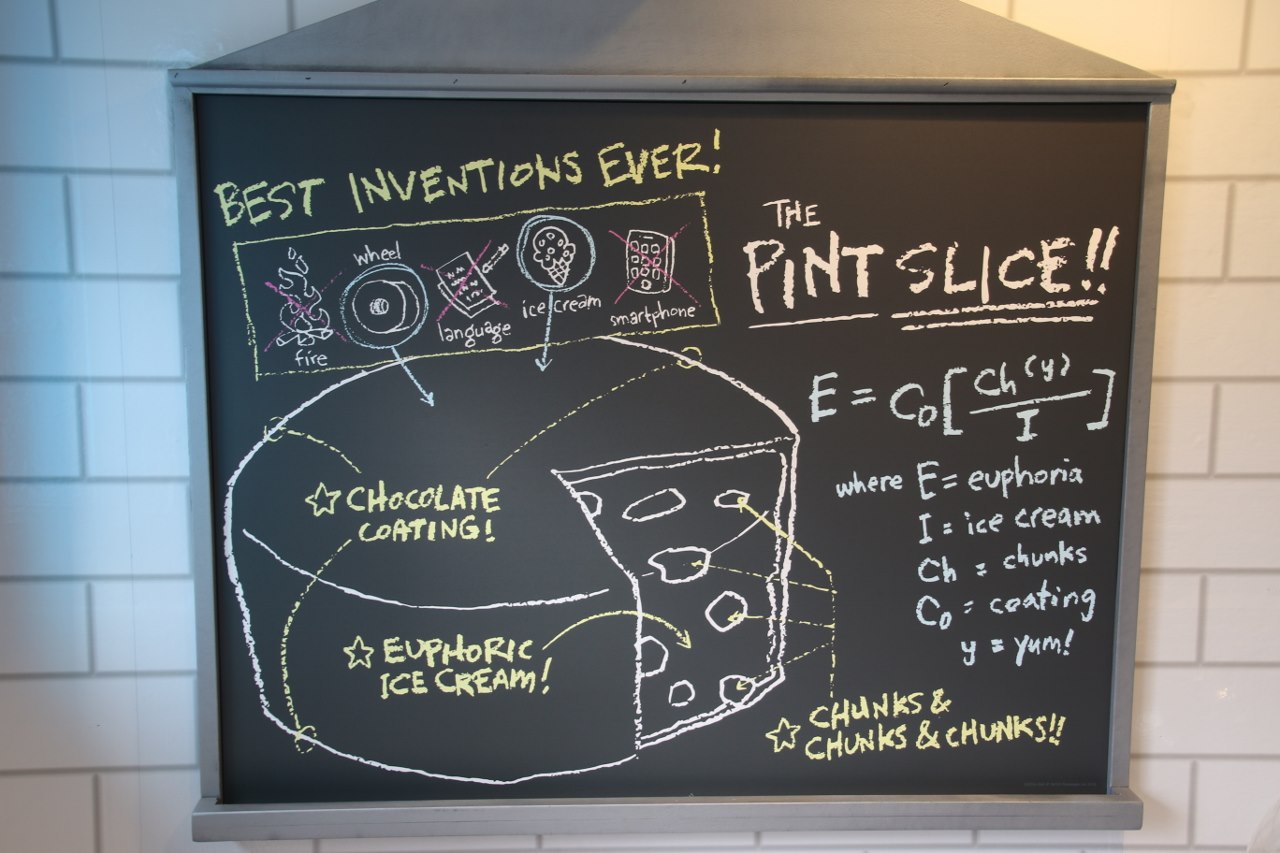 BEST INVENTIONS EVER!
fire
wheel
language
ice cream
smartphone
THE
PINT SLICE!!
E = Co[Ch(y)/I]
where E = euphoria
I = ice cream
Ch = chunks
Co = coating
y = yum!
☆ CHOCOLATE
COATING!
☆ EUPHORIC
ICE CREAM!
☆ CHUNKS &
CHUNKS & CHUNKS!!